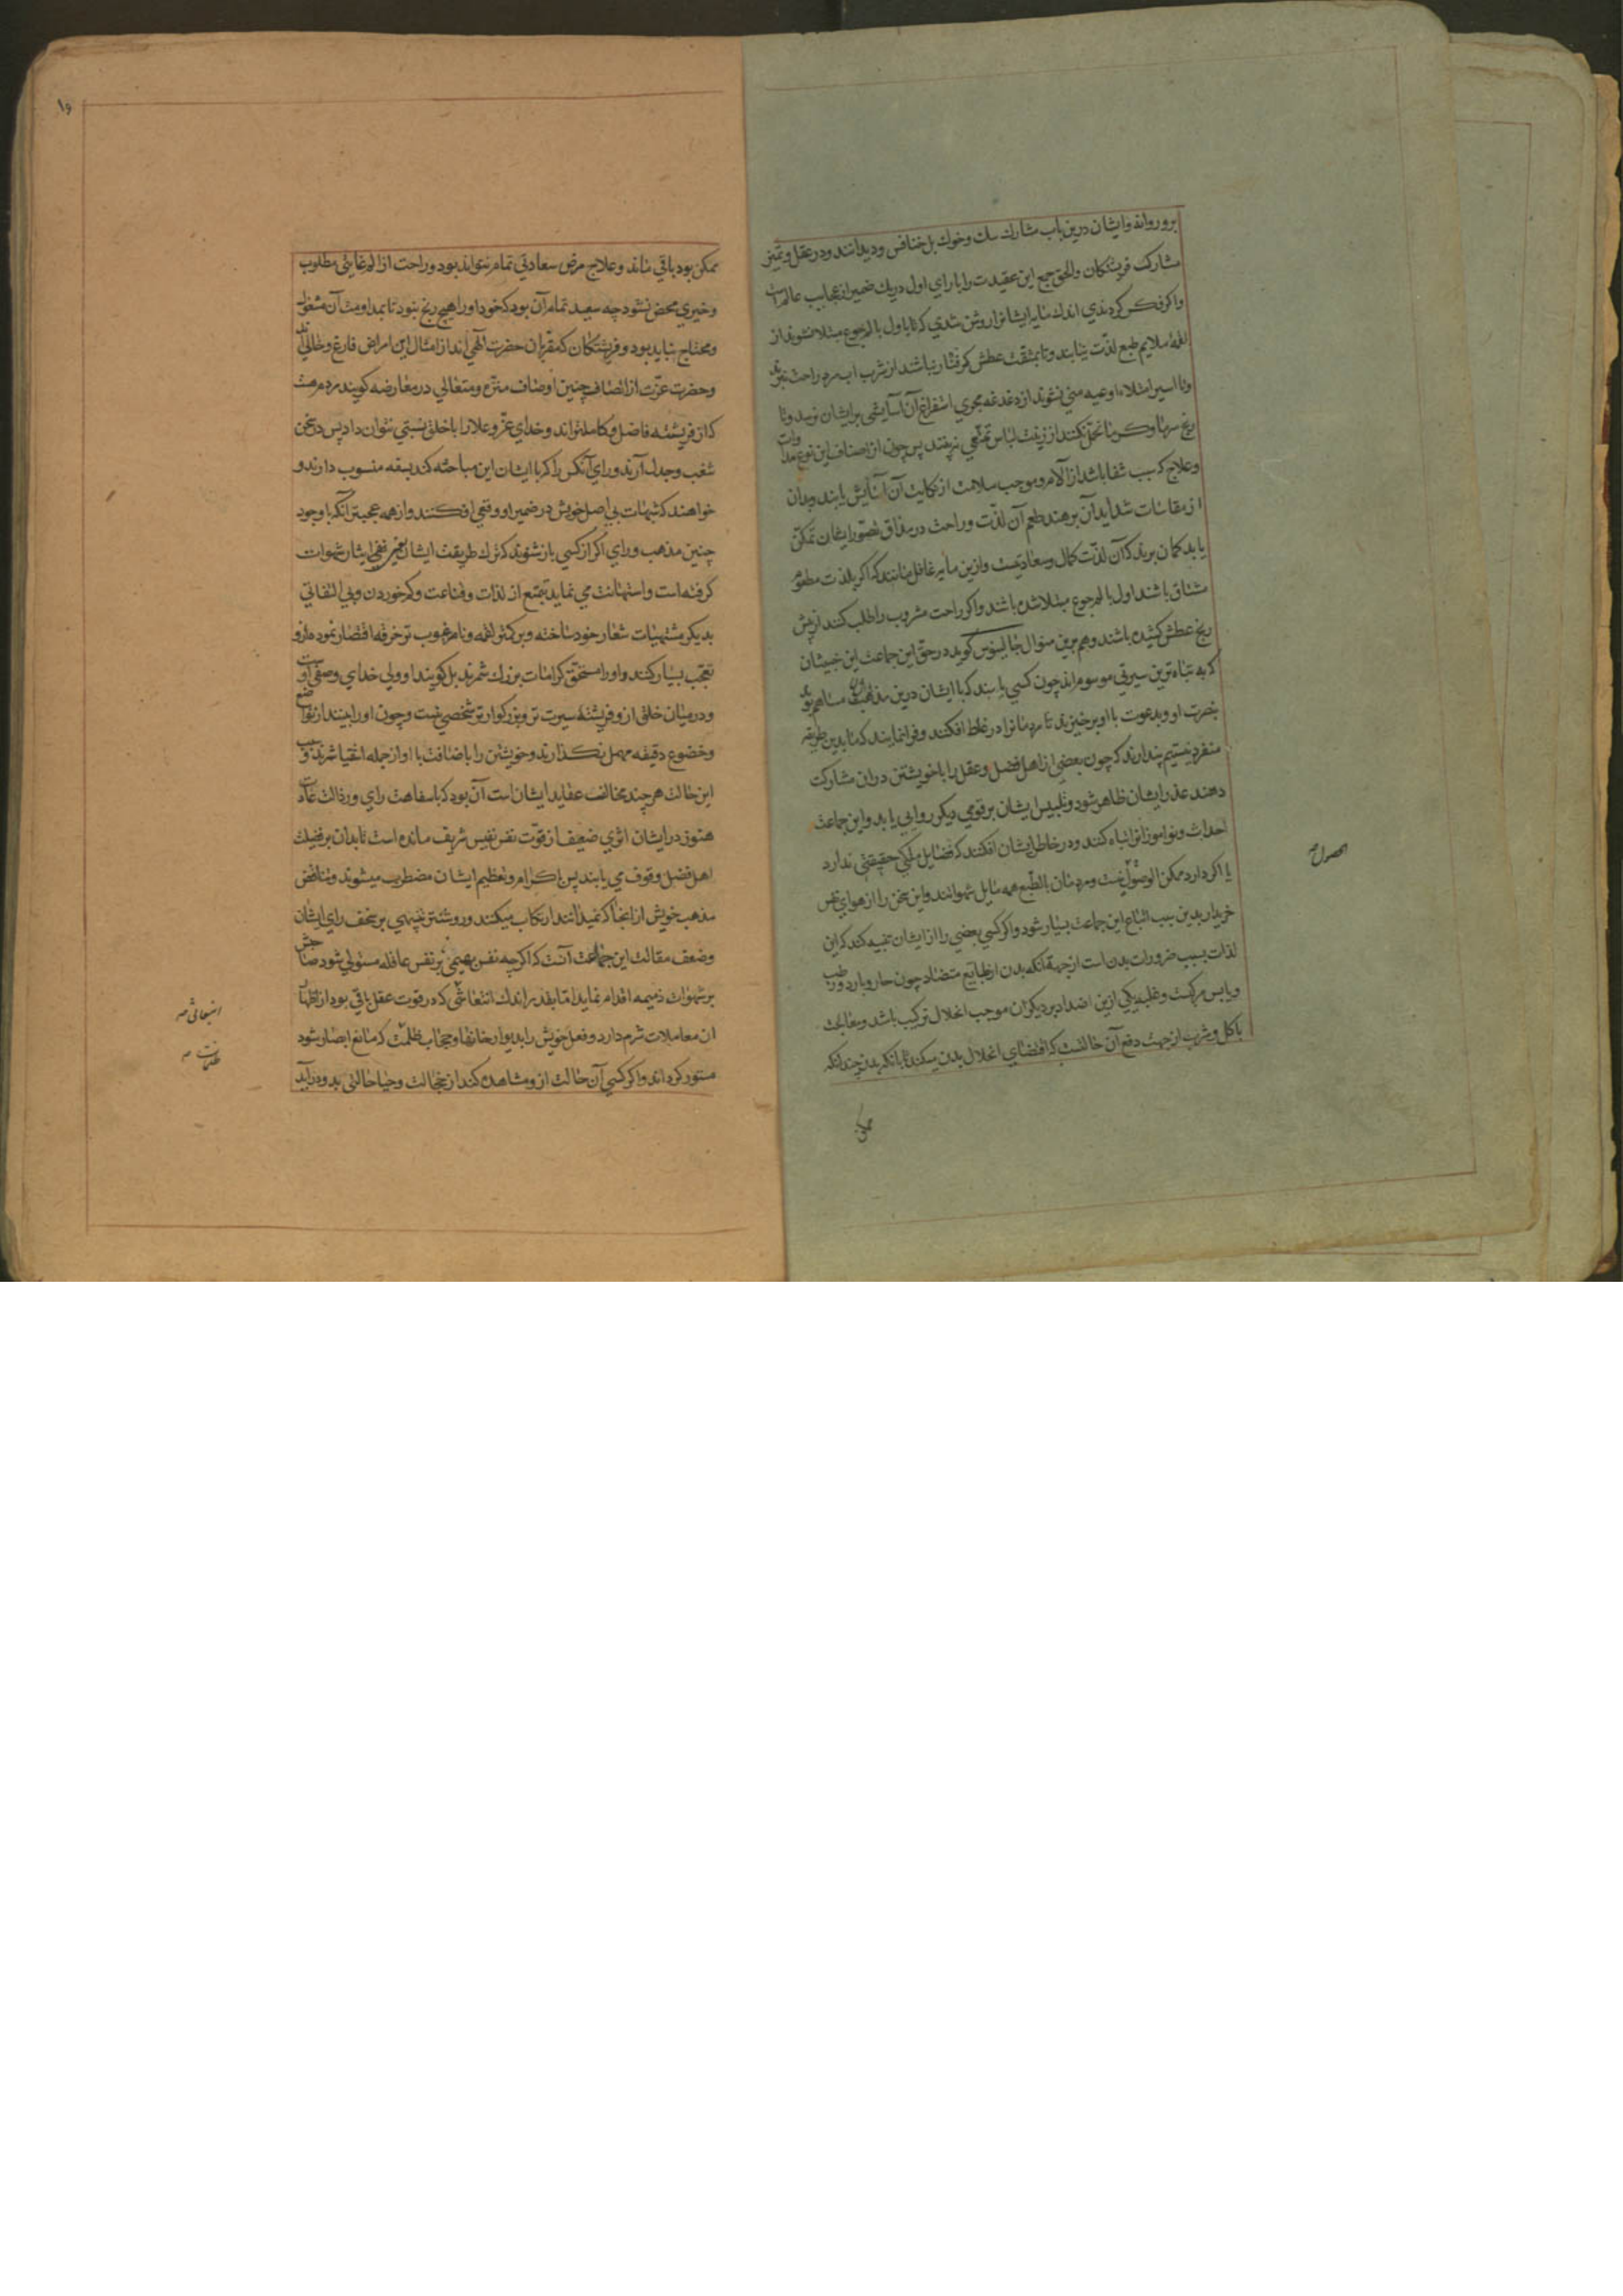 برو رواند و ایشان درین باب مشارک سک و خوک بل خنافس و دیدانند و در عقل و تمیز
مشارک فریشتکان والحق جمع این عقیدت را با رای اول در یک ضمیر از عجایب عالم است
واکر فکر کردندی اندک مایه ایشانرا روشن شدی که تا باول بالم جوع مبتلا نشوند از
لقمهٔ ملایم طبع لذّت نیابند و تا بمشقت عطش کرفتار نباشند از شرب اب سرد راحت نبرند
وتا اسیر امتلاء اوعیه منی نشوند از دغدغه مجری استفراغ آن آسایشی برایشان نرسد وتا
رنج سرما وکرما تحمّل نکنند از زینت لباس تمتّعی نبرند پس چون از اصناف این نوع مداوات
وعلاج که سبب شفا باشد از آلام و موجب سلامت از نکایت آن آسایش یابند و بدان
از مقاسات شداید آن برهند طعم آن لذّت و راحت در مذاق تصوّر ایشان تمکّن
یابد کمان برند که آن لذّت کمال وسعادتیست وازین مایه غافل مانند که اکر بلذت مطعوم
مشتاق باشند اول بالم جوع مبتلا شده باشند واکر راحت مشروب را طلب کنند از پیش
رنج عطش کشیده باشند وهم برین منوال جالینوس کوید در حقّ این جماعت این خبیثان
که به تباه ترین سیرتی موسوم اند چون کسی یابند که با ایشان درین مذهب مساهم بود
بنصرت او و بدعوت با او برخیزند تا مردمانرا در غلط افکنند و فرا نمایند که ما بدین طریقه
منفرد نیستیم پندارند که چون بعضی از اهل فضل و عقل را با خویشتن دران مشارکت
دهند عذر ایشان ظاهر شود و تلبیس ایشان بر قومی دیکر روایی یابد واین جماعت
احداث ونواموزانرا تباه کنند ودر خاطر ایشان افکنند که فضایل ملکی حقیقتی ندارد
یا اکر دارد ممکن الوصول نیست ومردمان بالطّبع همه مایل شهواتند واین سخن را از هوای نفس
خریدار بدین سبب اتباع این جماعت بسیار شود واکر کسی بعضی را از ایشان تنبیه کند که این
لذات بسبب ضرورات بدن است از جهة آنکه بدن از طبایع متضاد چون حار وبارد ورطب
ویابس مرکبست وغلبه یکی ازین اضداد بر دیکران موجب انحلال ترکیب باشد ومعالجت
باکل وشرب از جهت دفع آن حالتست که اقتضای انحلال بدن میکند تا بآنکه بدن چندانکه
الحصول صح
ممکن
ممکن بود باقی ماند وعلاج مرض سعادتی تمام نتواند بود وراحت از الم غایتی مطلوب
وخیری محض نشود چه سعید تمام آن بود که خود اورا هیچ رنج نبود تا بمداومت آن مشغول
ومحتاج نباید بود وفریشتکان که مقرّبان حضرت الهی اند از امثال این امراض فارغ وخالی اند
وحضرت عزّت از اتصاف چنین اوصاف منزّه ومتعالی در معارضه کویند مردم هست
که از فریشته فاضل وکامل تراند وخدای عزّ وعلا را با خلق نسبتی نتوان داد پس در سخن
شغب وجدل آرند ورای آنکس را که با ایشان این مباحثه کند بسفه منسوب دارند و
خواهند که شبهات بی اصل خویش در ضمیر او وقتی افکنند واز همه عجبتر آنکه با وجود
چنین مذهب و رای اکر از کسی باز شنوند که ترک طریقت ایشان ایثار شهوات
کرفته است واستهانت می نماید بتمتع از لذات وقناعت وکم خوردن وبی التفاتی
بدیکر مشتهیات شعار خود ساخته وبر کمتر لقمه ونامرغوب تر خرقه اقتصار نموده ازو
تعجب بسیار کنند واورا مستحقّ کرامات بزرک شمرند بل کویند او ولی خدای وصفی اوست
ودر میان خلق ازو فریشته سیرت تر وبزرکوارتر شخصی نیست وچون اورا بینند از تواضع
وخضوع دقیقه مهمل نکذارند وخویشتن را باضافت با او از جمله اشقیا شمرند و سبب
این حالت هر چند مخالف عقاید ایشان است آن بود که با سفاهت رای ورذالت عادت
هنوز در ایشان اثری ضعیف از قوّت نفس نفیس شریف مانده است تا بدان بر فضیلت
اهل فضل وقوف می یابند پس باکرام وتعظیم ایشان مضطرب میشوند ومناقض
مذهب خویش از انجا که نمیدانند ارتکاب میکنند وروشنتر تنبیهی بر سخف رای ایشان
وضعف مقالت این جماعت آنست که اکرچه نفس بهیمی بر نفس عاقله مستولی شود صاحبش
بر شهوات ذمیمه اقدام نماید اما بقدر اندک انتعاشی که در قوت عقل باقی بود از اظهار
ان معاملات شرم دارد وفعل خویش را بدیوار خانها وحجاب ظلمت که مانع ابصار شود
مستور کرداند واکر کسی آن حالت ازو مشاهده کند از خجالت وحیا حالتی بدو در آید
انتعاشی صح
ظلمات صح